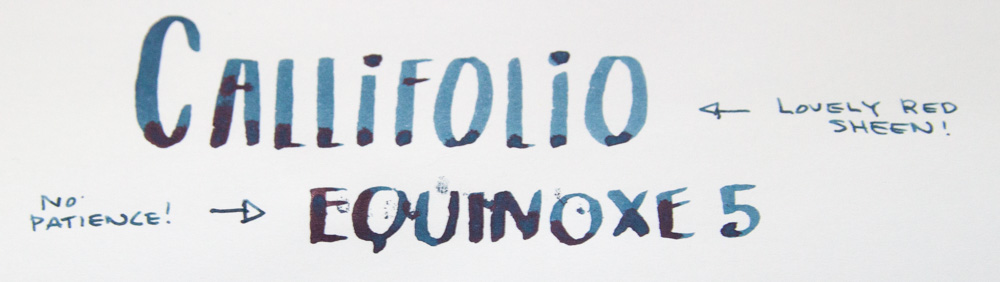 CALLiFOLiO
LOVELY RED
SHEEN!
NO
PATIENCE!
EQUINOXE 5